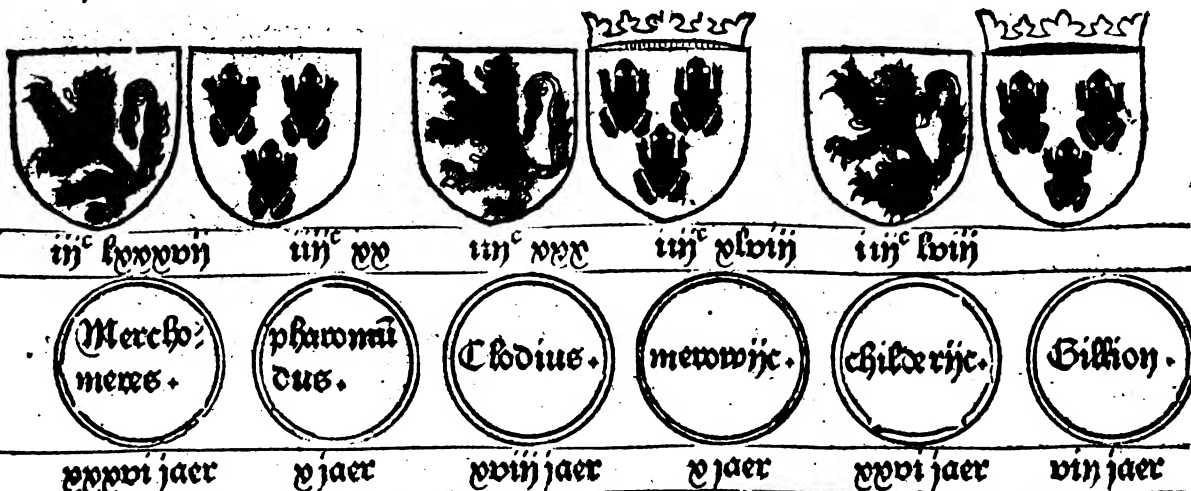 iijᶜ lxxxvij iiijᶜ xx iiijᶜ xxx iiijᶜ xlviij iiijᶜ lviij
Mercho⸗
meres.
pharomū
dus.
Clodius.
merowijc.
childerijc.
Gillion.
xxxvi jaer x jaer xviij jaer x jaer xxvi jaer viij jaer